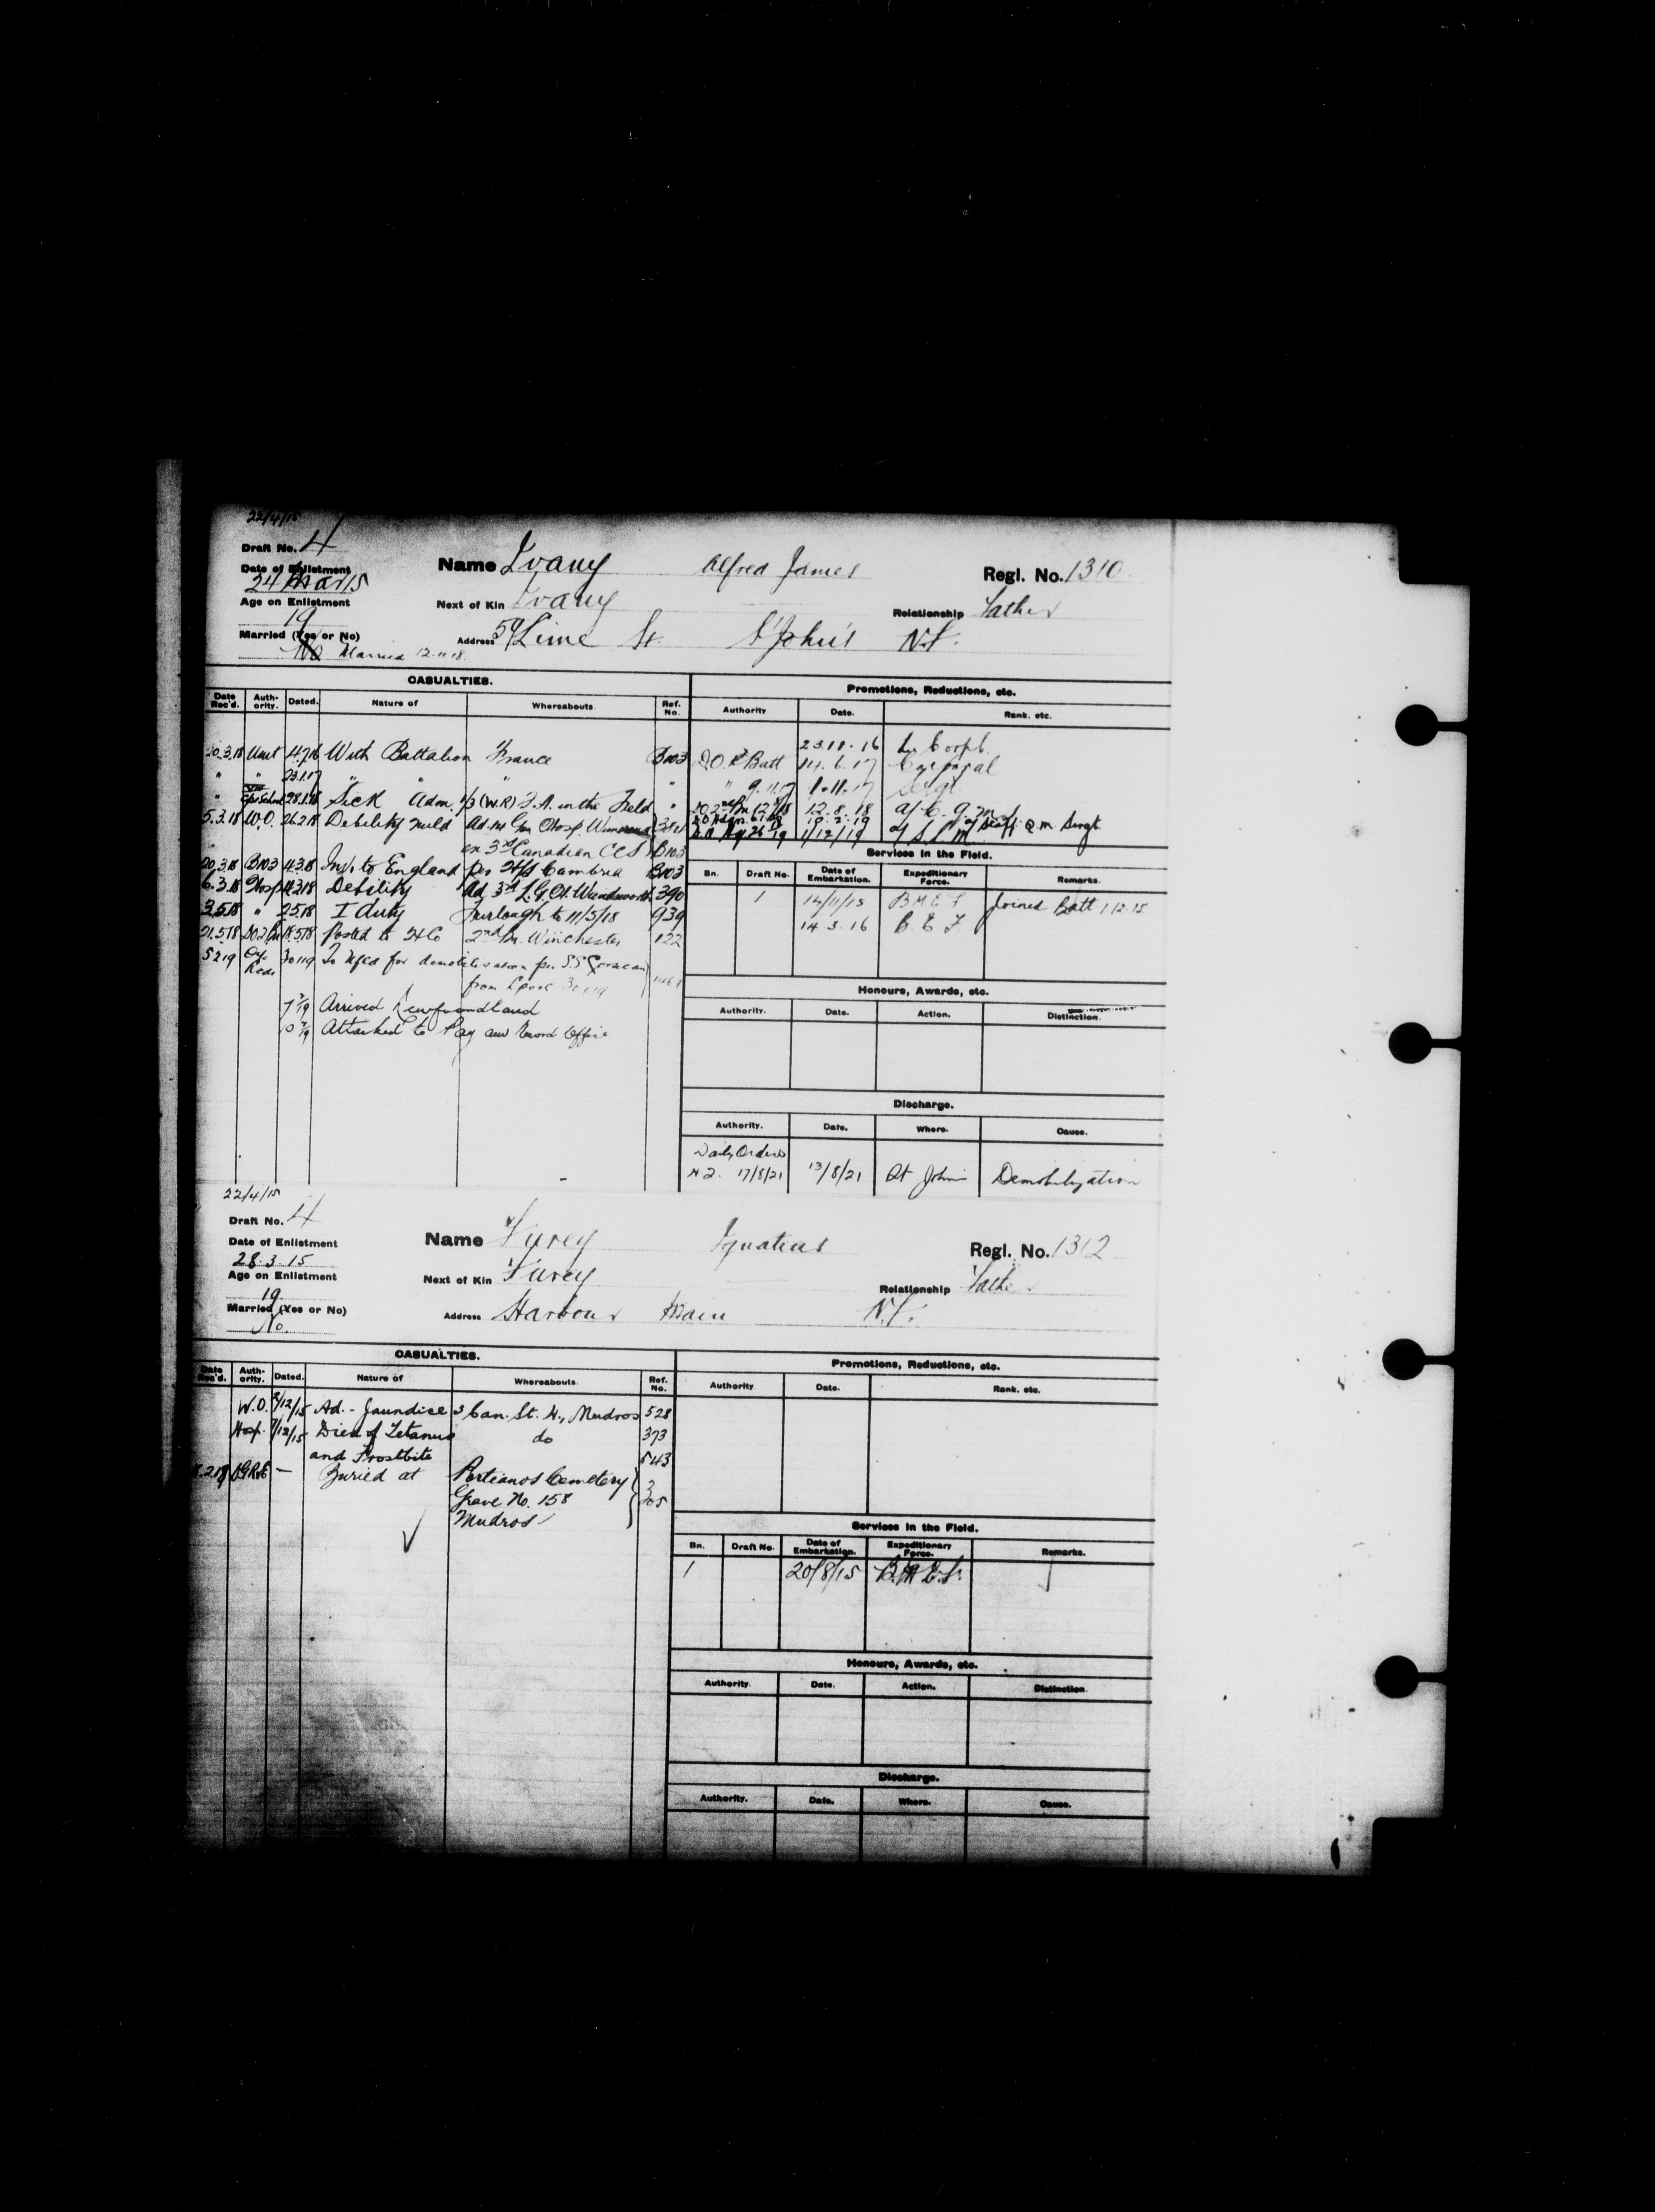 22/4/15
Draft No. 4
Name Ivany Alfred James Regl. No. 1310
Date of Enlistment
24 Mar 15
Age on Enlistment
19
Next of Kin Ivany Relationship Father
Married (Yes or No)
No Married 12.11.18.
Address Lime St. St John's N.F.
CASUALTIES.
Date Rec'd. Auth-ority. Dated. Nature of Whereabouts. Ref. No.
20.3.18 Unit 4.7.16 With Battalion France B103
" " 23.1.17 " " " "
" 28.1.18 Sick Adm. 1/3 (W.R) F.A. in the Field "
5.3.18 W.O. 26.2.18 Debility mild Ad. Gen Hosp.
ex 3rd Canadian CCS B103
20.3.18 B103 4.3.18 Inv. to England per H/S Cambria B103
6.3.18 Hosp 4.3.18 Debility Ad 3rd L.G.H. Wandsworth 390
3.5.18 " 2.5.18 I duty Furlough to 11/5/18 939
21.5.18 DO2Bn 18.5.18 Posted to H Co 2nd Bn. Winchester 122
5.2.19 Reds 30.1.19 To Nfld for demobilisation per S.S Corsican
from Lpool 30.1.19
7/2/19 Arrived Newfoundland
Attached to Pay and Record Office
Promotions, Reductions, etc.
Authority Date. Rank. etc.
23.11.16 L. Corpl.
D.O. Batt 14.6.17 Corporal
" 9.11.17 1.11.17 Sergt.
12.8.18 a/C.Q.M.S.
Staff Q.M. Sergt.
1/12/19 a/ S.S.M.
Services in the Field.
Bn. Draft No. Date of Embarkation. Expeditionary Force. Remarks.
1 14/11/15 B M E F Joined Batt 1.12.15
14.3.16 B.E.F
Honours, Awards, etc.
Authority. Date. Action. Distinction.
Discharge.
Authority. Date. Where. Cause.
Daily Orders
17/8/21 13/8/21 St John's Demobilization
22/4/15
Draft No. 4
Name Furey Ignatius Regl. No. 1312
Date of Enlistment
28.3.15
Age on Enlistment
19.
Next of Kin Furey Relationship Father
Married (Yes or No)
No.
Address Harbour Main N.F.
CASUALTIES.
Date Rec'd. Auth-ority. Dated. Nature of Whereabouts. Ref. No.
W.O. 2/12/15 Ad. - Jaundice 3 Can. St. H., Mudros 528
Hosp. 7/12/15 Died of Tetanus do 373
and Frostbite 543
DGR&E — Buried at Portianos Cemetery
Grave No. 158
Mudros
Promotions, Reductions, etc.
Authority Date. Rank. etc.
Services in the Field.
Bn. Draft No. Date of Embarkation. Expeditionary Force. Remarks.
1 20/8/15 B.M.E.F.
Honours, Awards, etc.
Authority. Date. Action. Distinction.
Discharge.
Authority. Date. Where. Cause.